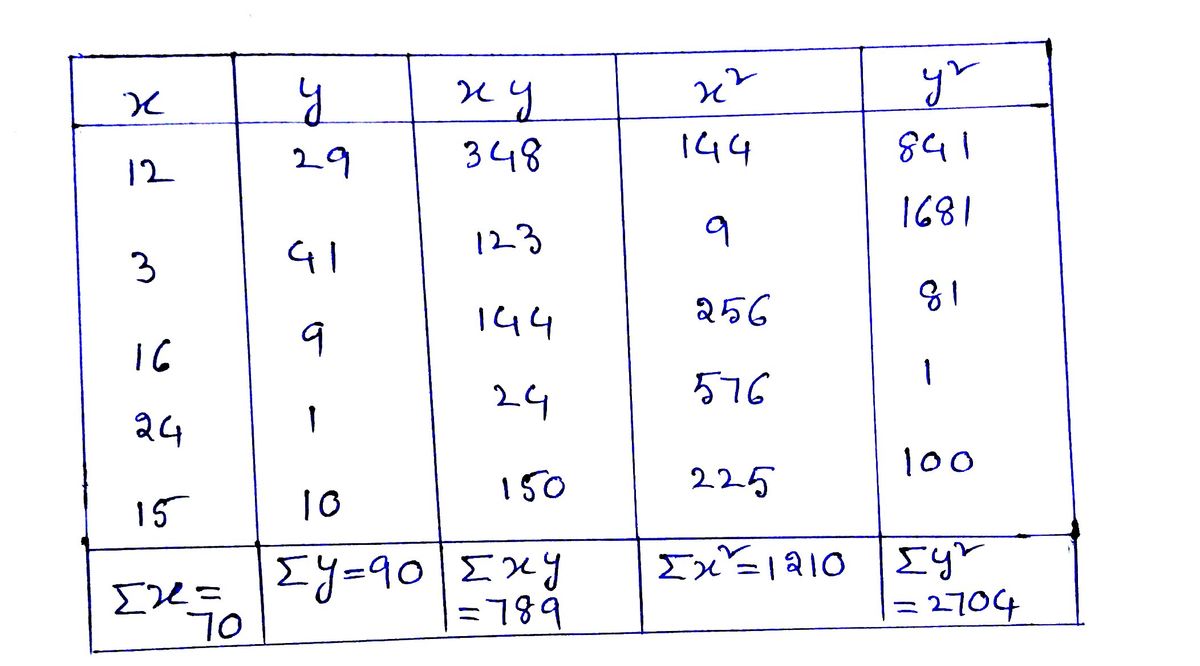 x y xy x² y²
12 29 348 144 841
3 41 123 9 1681
16 9 144 256 81
24 1 24 576 1
15 10 150 225 100
Σx= 70 Σy=90 Σxy =789 Σx²=1210 Σy² =2704